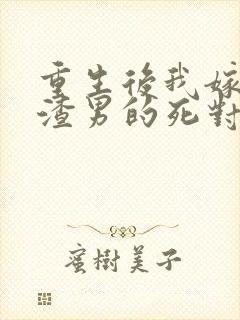 重生後我嫁
渣男的死對
蜜樹美子